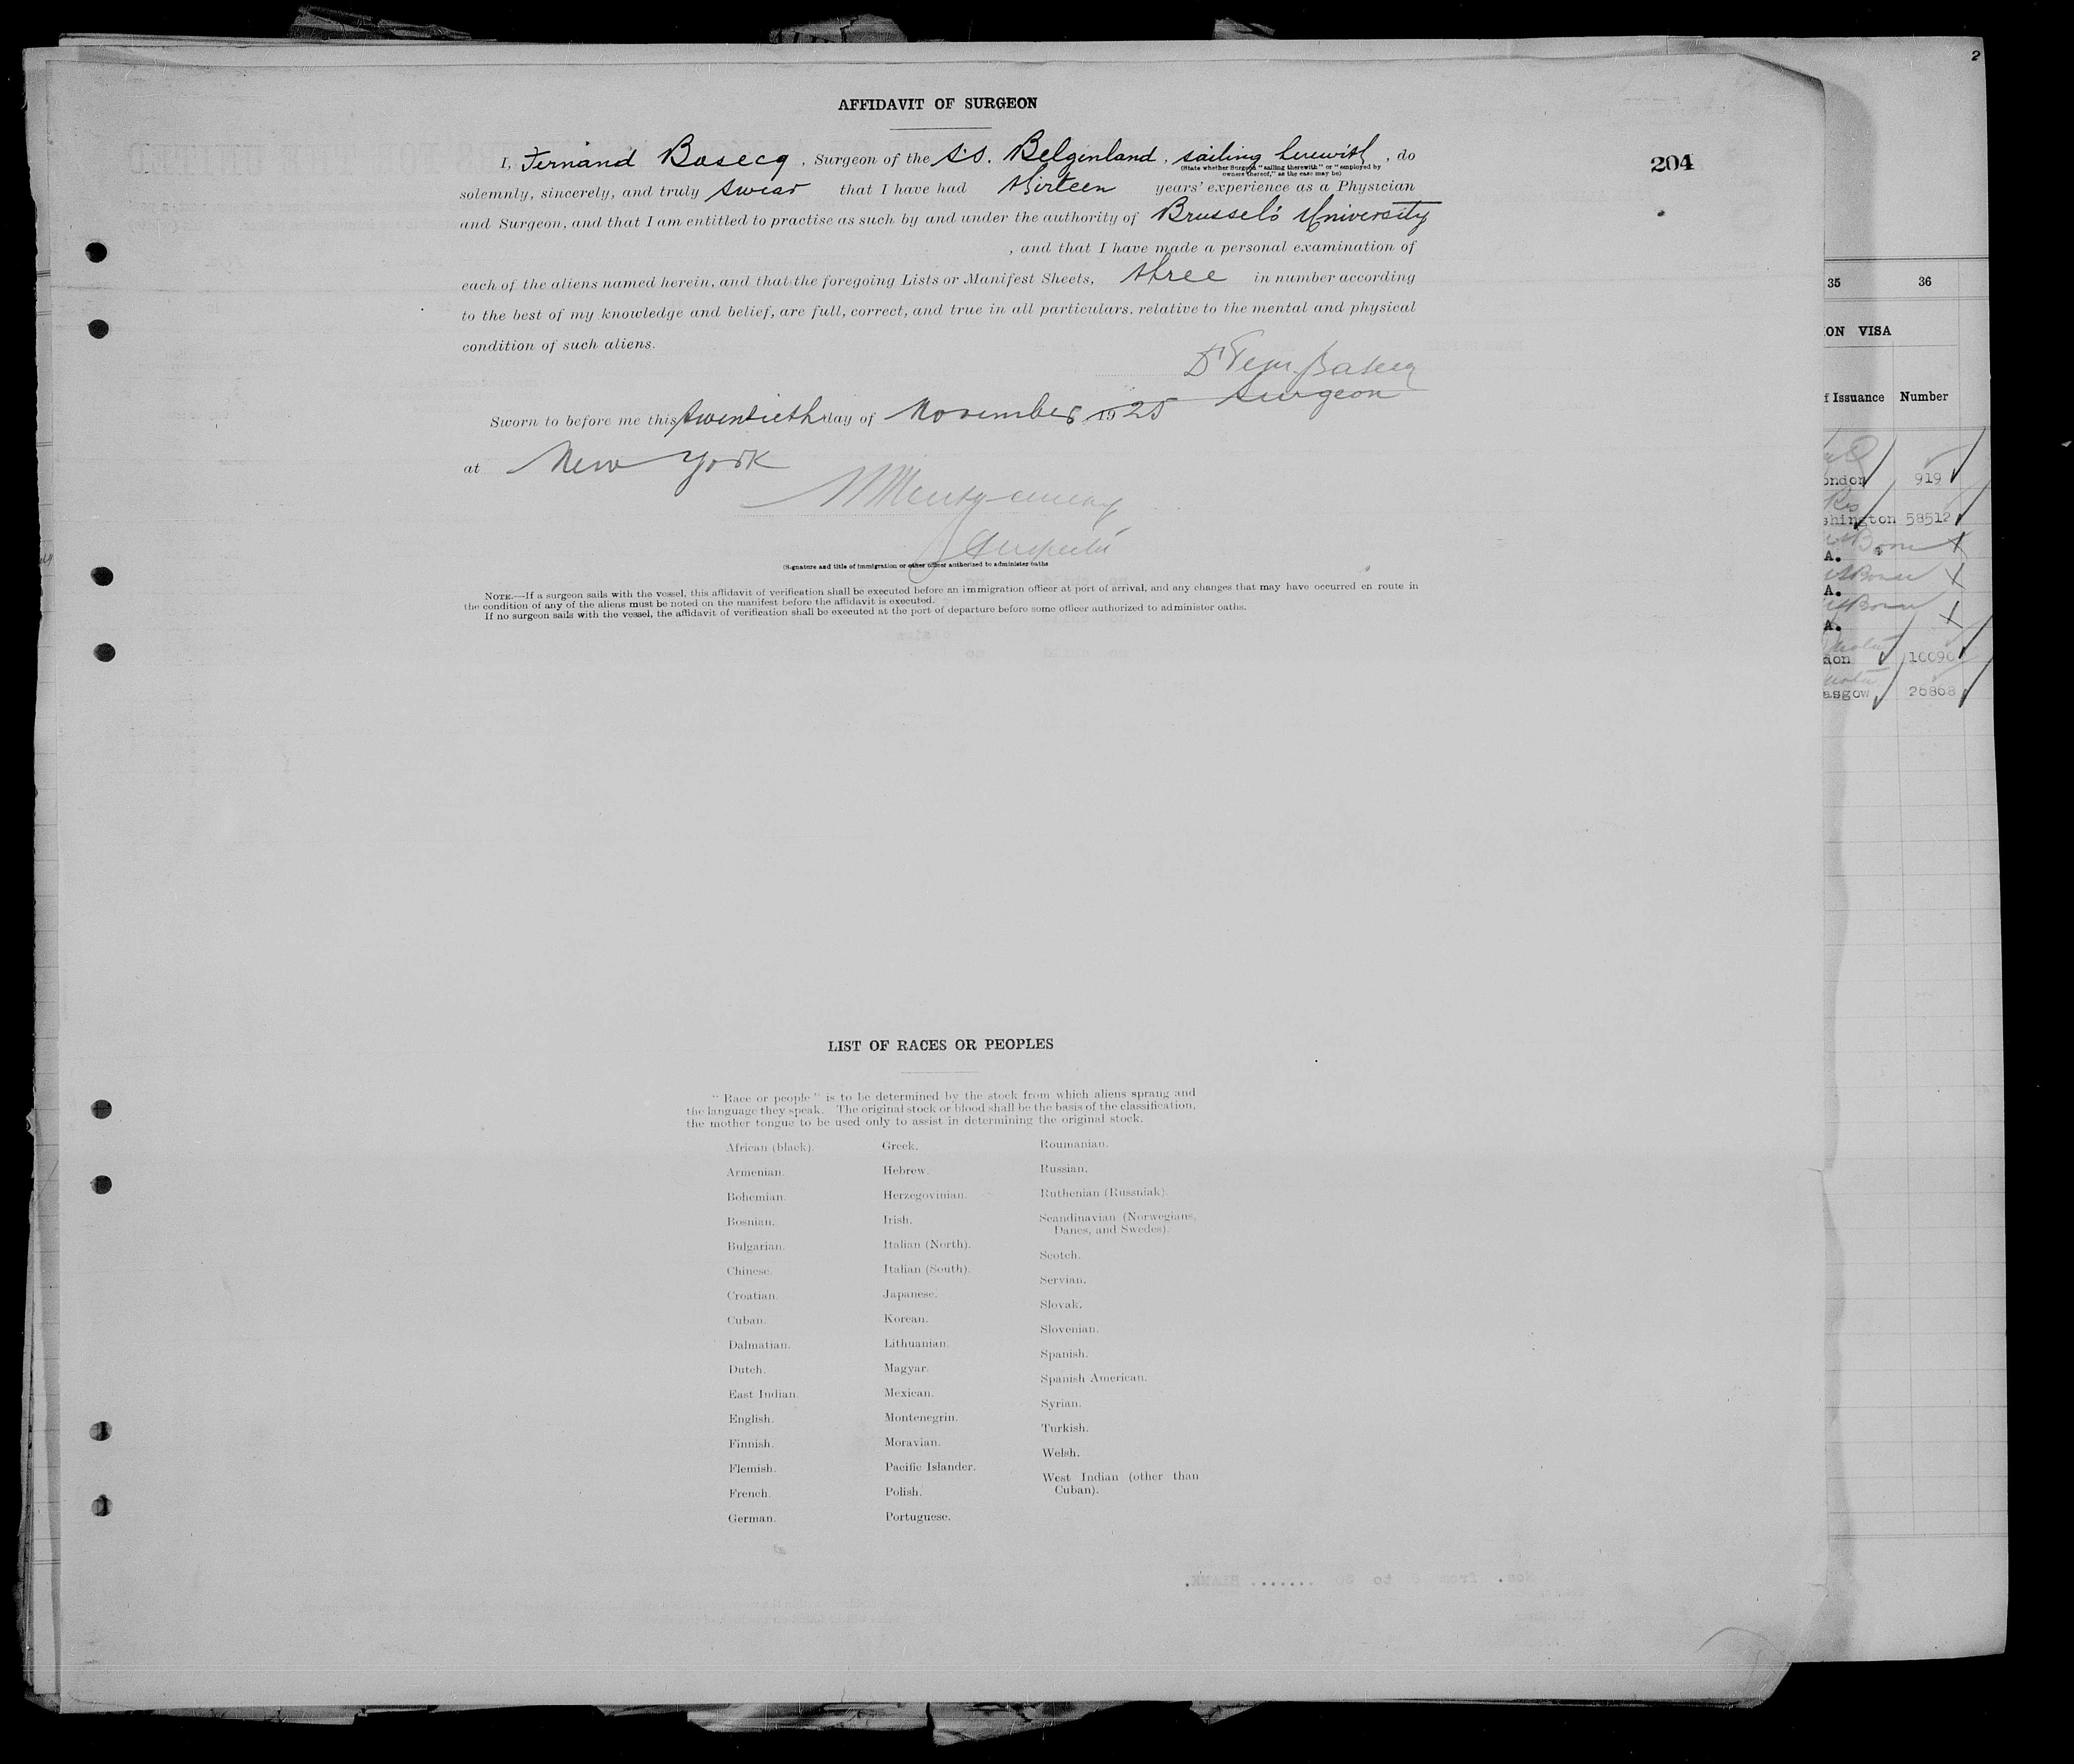 2
AFFIDAVIT OF SURGEON
204
I, Fernand Basecq, Surgeon of the S.S. Belgenland, sailing herewith, do
(State whether Surgeon "sailing therewith" or "employed by
owners thereof," as the case may be)
solemnly, sincerely, and truly swear that I have had thirteen years' experience as a Physician
and Surgeon, and that I am entitled to practise as such by and under the authority of Brussels University
, and that I have made a personal examination of
each of the aliens named herein, and that the foregoing Lists or Manifest Sheets, three in number according
to the best of my knowledge and belief, are full, correct, and true in all particulars, relative to the mental and physical
condition of such aliens.
Dr Fern. Basecq
Surgeon
Sworn to before me this twentieth day of November, 1925
at New York
Montgomery
Inspector
(Signature and title of immigration or other officer authorized to administer oaths
NOTE.—If a surgeon sails with the vessel, this affidavit of verification shall be executed before an immigration officer at port of arrival, and any changes that may have occurred en route in
the condition of any of the aliens must be noted on the manifest before the affidavit is executed.
If no surgeon sails with the vessel, the affidavit of verification shall be executed at the port of departure before some officer authorized to administer oaths.
LIST OF RACES OR PEOPLES
"Race or people" is to be determined by the stock from which aliens sprang and
the language they speak. The original stock or blood shall be the basis of the classification,
the mother tongue to be used only to assist in determining the original stock.
African (black).
Armenian.
Bohemian.
Bosnian.
Bulgarian.
Chinese.
Croatian.
Cuban.
Dalmatian.
Dutch.
East Indian.
English.
Finnish.
Flemish.
French.
German.
Greek.
Hebrew.
Herzegovinian.
Irish.
Italian (North).
Italian (South).
Japanese.
Korean.
Lithuanian.
Magyar.
Mexican.
Montenegrin.
Moravian.
Pacific Islander.
Polish.
Portuguese.
Roumanian.
Russian.
Ruthenian (Russniak).
Scandinavian (Norwegians,
Danes, and Swedes).
Scotch.
Servian.
Slovak.
Slovenian.
Spanish.
Spanish American.
Syrian.
Turkish.
Welsh.
West Indian (other than
Cuban).
35 36
ON VISA
f Issuance Number
ondon 919
shington 58512
A.
A.
A.
don 10090
asgow 26868